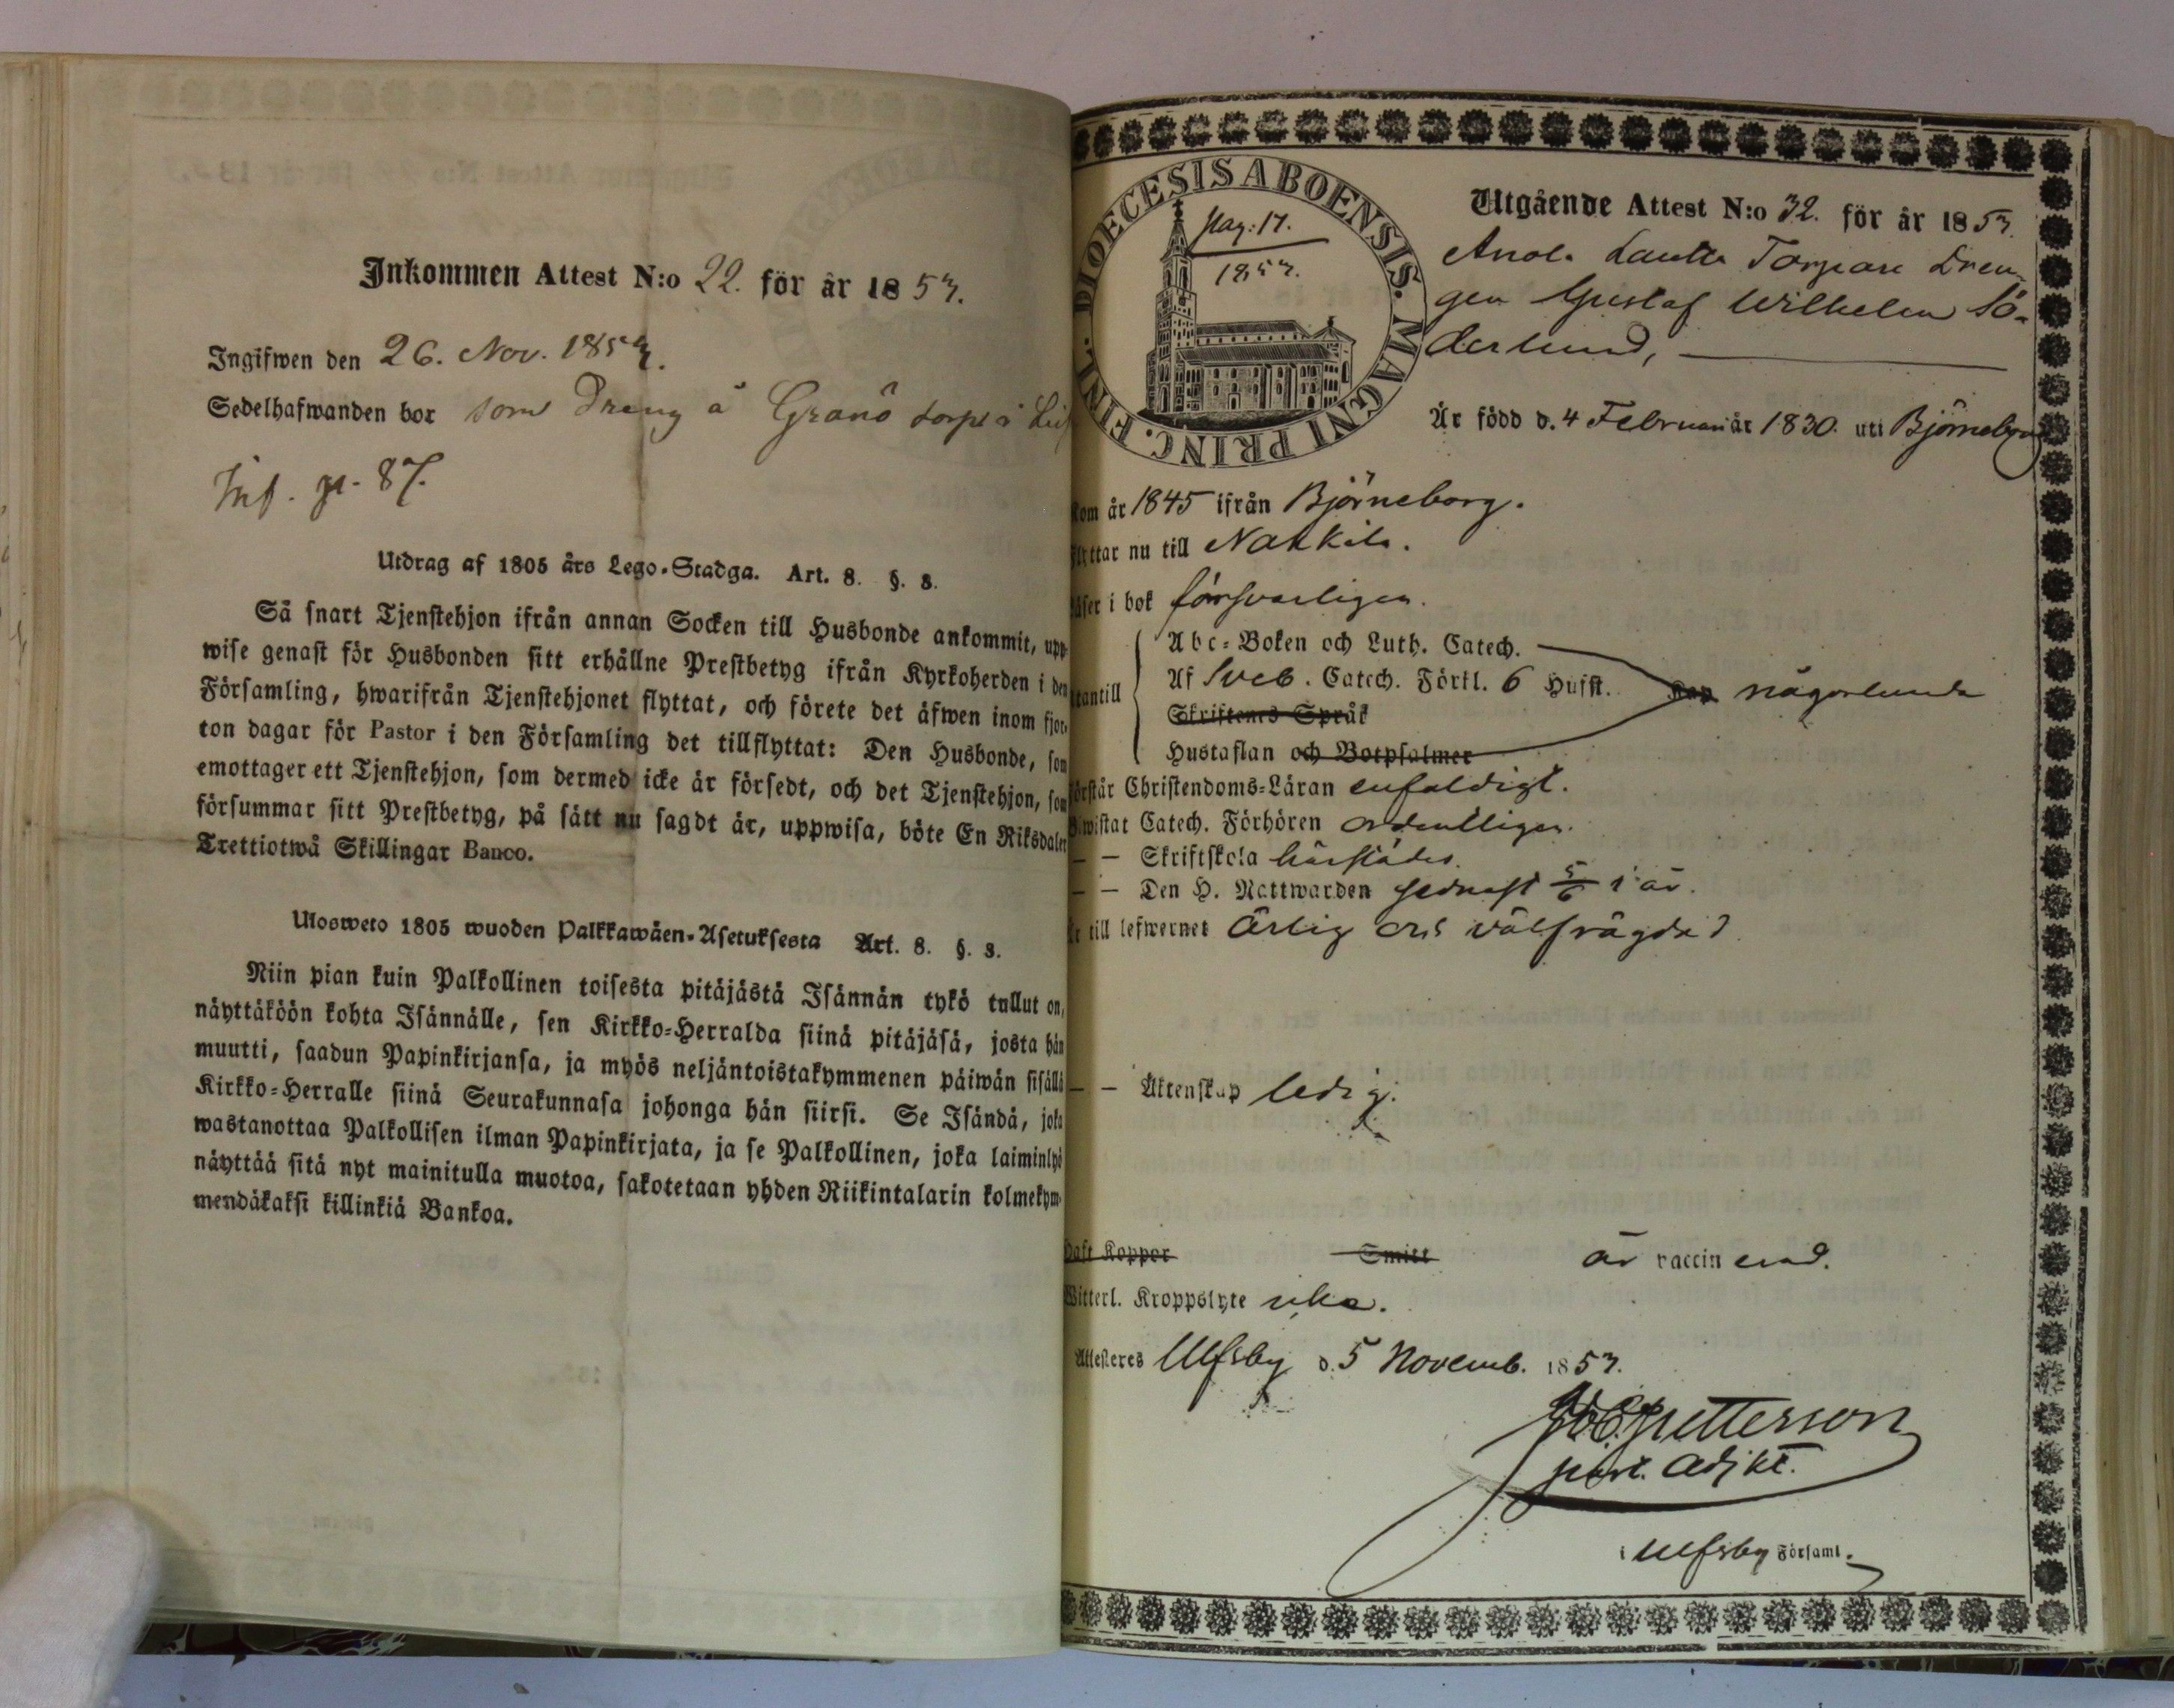 Inkommen Attest N:o 22. för år 1853.
Ingifwen den 26. Nov. 1853.
Sedelhafwanden bor som Dräng å Granö torp i
Inf. p. 87.
Utdrag af 1805 års Lego-Stadga. Art. 8. §. 8.
Så snart Tjenstehjon ifrån annan Socken till Husbonde ankommit, upp-
wise genast för Husbonden sitt erhållne Prestbetyg ifrån Kyrkoherden i den
Församling, hwarifrån Tjenstehjonet flyttat, och förete det äfwen inom fjor-
ton dagar för Pastor i den Församling det tillflyttat: Den Husbonde, som
emottager ett Tjenstehjon, som dermed icke är försedt, och det Tjenstehjon, som
försummar sitt Prestbetyg, på sätt nu sagdt är, uppwisa, böte En Riksdaler
Trettiotwå Skillingar Banco.
Ulosweto 1805 wuoden Palkkawäen-Asetuksesta Art. 8. §. 8.
Niin pian kuin Palkollinen toisesta pitäjästä Isännän tykö tullut on,
näyttäköön kohta Isännälle, sen Kirkko-Herralda siinä pitäjäsä, josta hän
muutti, saadun Papinkirjansa, ja myös neljäntoistakymmenen päiwän sisällä
Kirkko-Herralle siinä Seurakunnasa johonga hän siirsi. Se Isändä, joka
wastanottaa Palkollisen ilman Papinkirjata, ja se Palkollinen, joka laiminlyö
näyttää sitä nyt mainitulla muotoa, sakotetaan yhden Riikintalarin kolmekym-
mendäkaksi killinkiä Bankoa.
DIOECESIS ABOENSIS. MAGNI PRINC. FINL.
pag: 17.
1853.
Utgående Attest N:o 32. för år 1853.
Anola Lautta Torpare Dren-
gen Gustaf Wilhelm Sö-
derlund,
Är född d. 4 Februari år 1830. uti Björneborg
kom år 1845 ifrån Björneborg.
flyttar nu till Nakkila.
läser i bok försvarligen.
Abc-Boken och Luth. Catech.
utantill Af Sveb. Catech. Förkl. 6 Hufst. någorlunda
Skriftenes Språk
Hustaflan och Botpsalmer
förstår Christendoms-Läran enfaldigt.
Biwistat Catech. Förhören ordentligen.
— — Skriftskola härstädes.
— — Den H. Nattwarden sednast 5/6 i år.
Är till lefwernet ärlig och välfrägdad
— — Äktenskap ledig.
Haft Koppor Smitt är vaccinerad.
Witterl. Kroppslyte icke.
Attesteres Ulfsby d. 5 Novemb. 1853.
Petterson
past. adjkt.
i Ulfsby Församl.